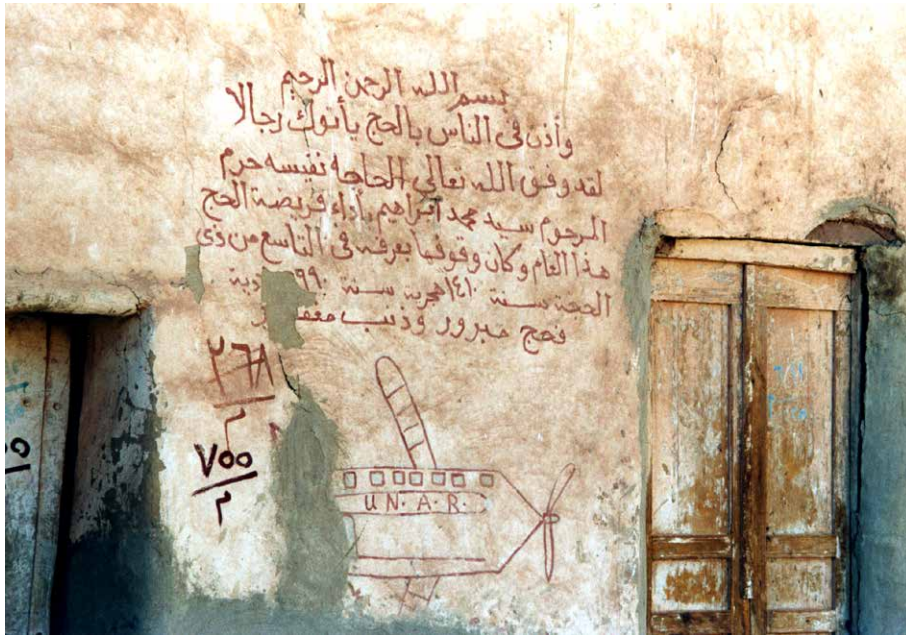 بسم الله الرحمن الرحيم
وأذن فى الناس بالحج يأتوك رجالا
لقد وفق الله تعالي الحاجه نفيسه حرم
المرحوم سيد محمد ابراهيم بأداء فريضة الحج
هذا العام وكان وقوفها بعرفه فى التاسع من ذى
الحجة سنة ١٤١٠هجرية سنة ٩٩٠
فحج مبرور وذنب
٢٦٨
٢
٧٥٥
٢
U N . A . R .